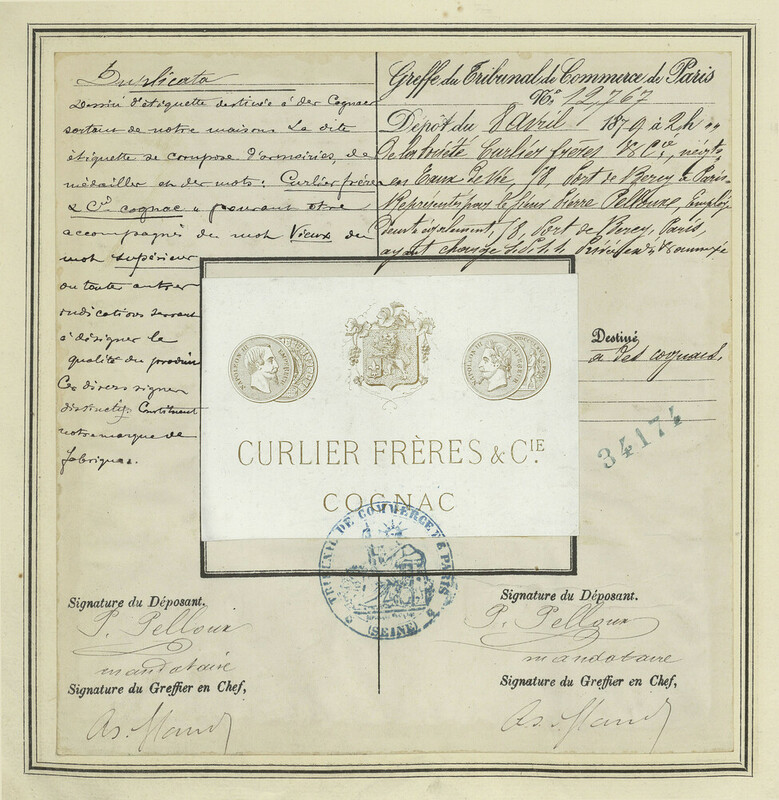 Duplicata
Dessin d'étiquette destinée à des Cognacs
sortant de notre maison. La dite
étiquette se compose d'armoiries, de
médailles et des mots: Curlier frères
& Cie cognac pouvant être
accompagnés du mot Vieux du
mot supérieur
ou toute autres
indications servant
à désigner la
qualité du produit
Ces divers signes
distinctifs Constituent
notre marque de
fabrique.
Greffe du Tribunal de Commerce de Paris
No. 12,767
Dépôt du 8 avril 1879 à 2h
De la Société Curlier frères & Cie, négts
en Eaux de Vie, 18, Port de Bercy à Paris
Représentés par le Sieur Pierre Pelloux, Employé
18, Port de Bercy, Paris,
Destiné
à des cognacs,
34174
NAPOLEON III EMPEREUR
NAPOLEON III EMPEREUR
CURLIER FRÈRES & CIE
COGNAC
TRIBUNAL DE COMMERCE DE PARIS
(SEINE)
Signature du Déposant.
P. Pelloux
mandataire
Signature du Greffier en Chef,
Signature du Déposant.
P. Pelloux
mandataire
Signature du Greffier en Chef,